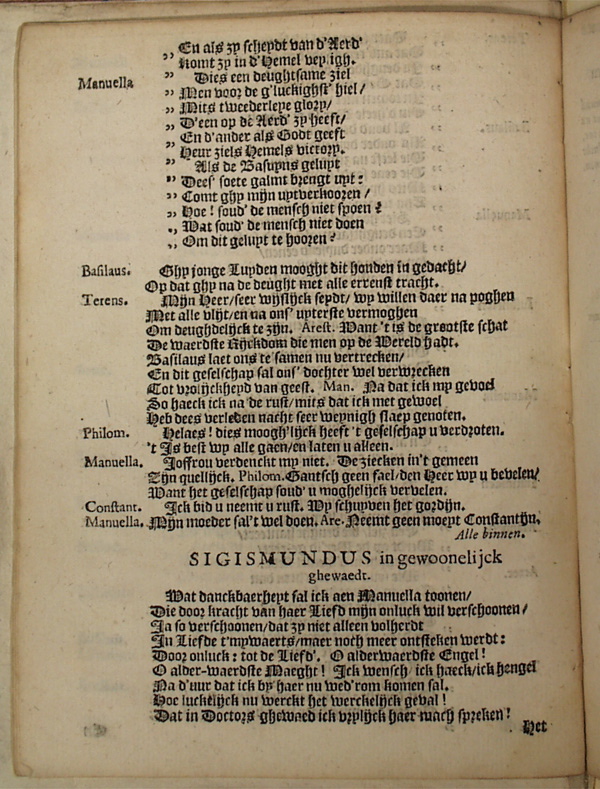 En als zy scheydt van d'Aerd'
” Komt zy in d'Hemel veyligh.
Manuella ” Dies een deughtsame ziel
” Men voor de g'luckighst' hiel/
” Mits tweederleye glory/
” D'een op de Aerd' zy heeft/
” En d'ander als Godt geeft
” Heur ziels Hemels victory.
” Als de Basuyns geluyt
” Dees' soete galmt brengt uyt:
” Comt ghy mijn uytverkooren/
” Hoe! soud' de mensch niet spoen?
„ Wat soud' de mensch niet doen
„ Om dit geluyt te hooren?
Basilaus. Ghy jonge Luyden mooght dit houden in gedacht/
Op dat ghy na de deught met alle errenst tracht.
Terens. Mijn Heer/seer wijslijck seydt/ wy willen daer na poghen
Met alle vlijt/en na ons' uyterste vermoghen
Om deughdelijck te zijn. Arest. Want 't is de grootste schat
De waerdste Rijckdom die men op de Wereld hadt.
Basilaus laet ons te samen nu vertrecken/
En dit geselschap sal ons' dochter wel verwecken
Tot vrolijckheyd van geest. Man. Na dat ick my gevoel
So haeck ick na de rust/mits dat ick met gewoel
Heb dees verleden nacht seer weynigh slaep genoten.
Philom. Helaes! dies moogh'lijck heeft 't geselschap u verdroten.
't Is best wy alle gaen/en laten u alleen.
Manuella. Joffrou verdenckt my niet. De ziecken in't gemeen
Zijn quellijck. Philom. Gantsch geen fael/den Heer wy u bevelen/
Want het geselschap soud' u moghelijck vervelen.
Constant. Ick bid u neemt u rust. Wy schuyven het gordijn.
Manuella. Mijn moeder sal't wel doen. Are. Neemt geen moeyt Constantijn.
Alle binnen.
SIGISMUNDUS in gewoonelijck
ghewaedt.
Wat danckbaerheyt sal ick aen Manuella toonen/
Die door kracht van haer Liefd mijn onluck wil verschoonen/
Ja so verschoonen/dat zy niet alleen volherdt
In Liefde t'mywaerts/maer noch meer ontsteken werdt:
Door onluck: tot de Liefd'. O alderwaerdste Engel!
O alder-waerdste Maeght! Ick wensch/ick haeck/ick hengel
Na d'uur dat ick by haer nu wed'rom komen sal.
Hoe luckelijck nu werckt het werckelijck geval!
Dat in Doctors ghewaed ick vrylijck haer mach spreken!
Het